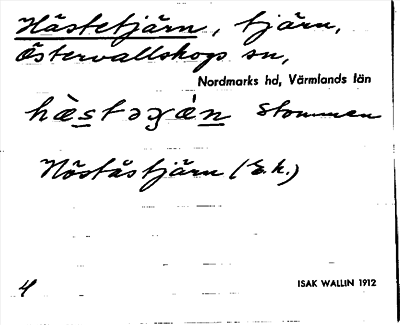 Hästetjärn, tjärn,
Östervallskogs sn,
Nordmarks hd, Värmlands län
hæ̀stəχæ̀n Stommen
Höståstjärn (E.k.)
4 ISAK WALLIN 1912